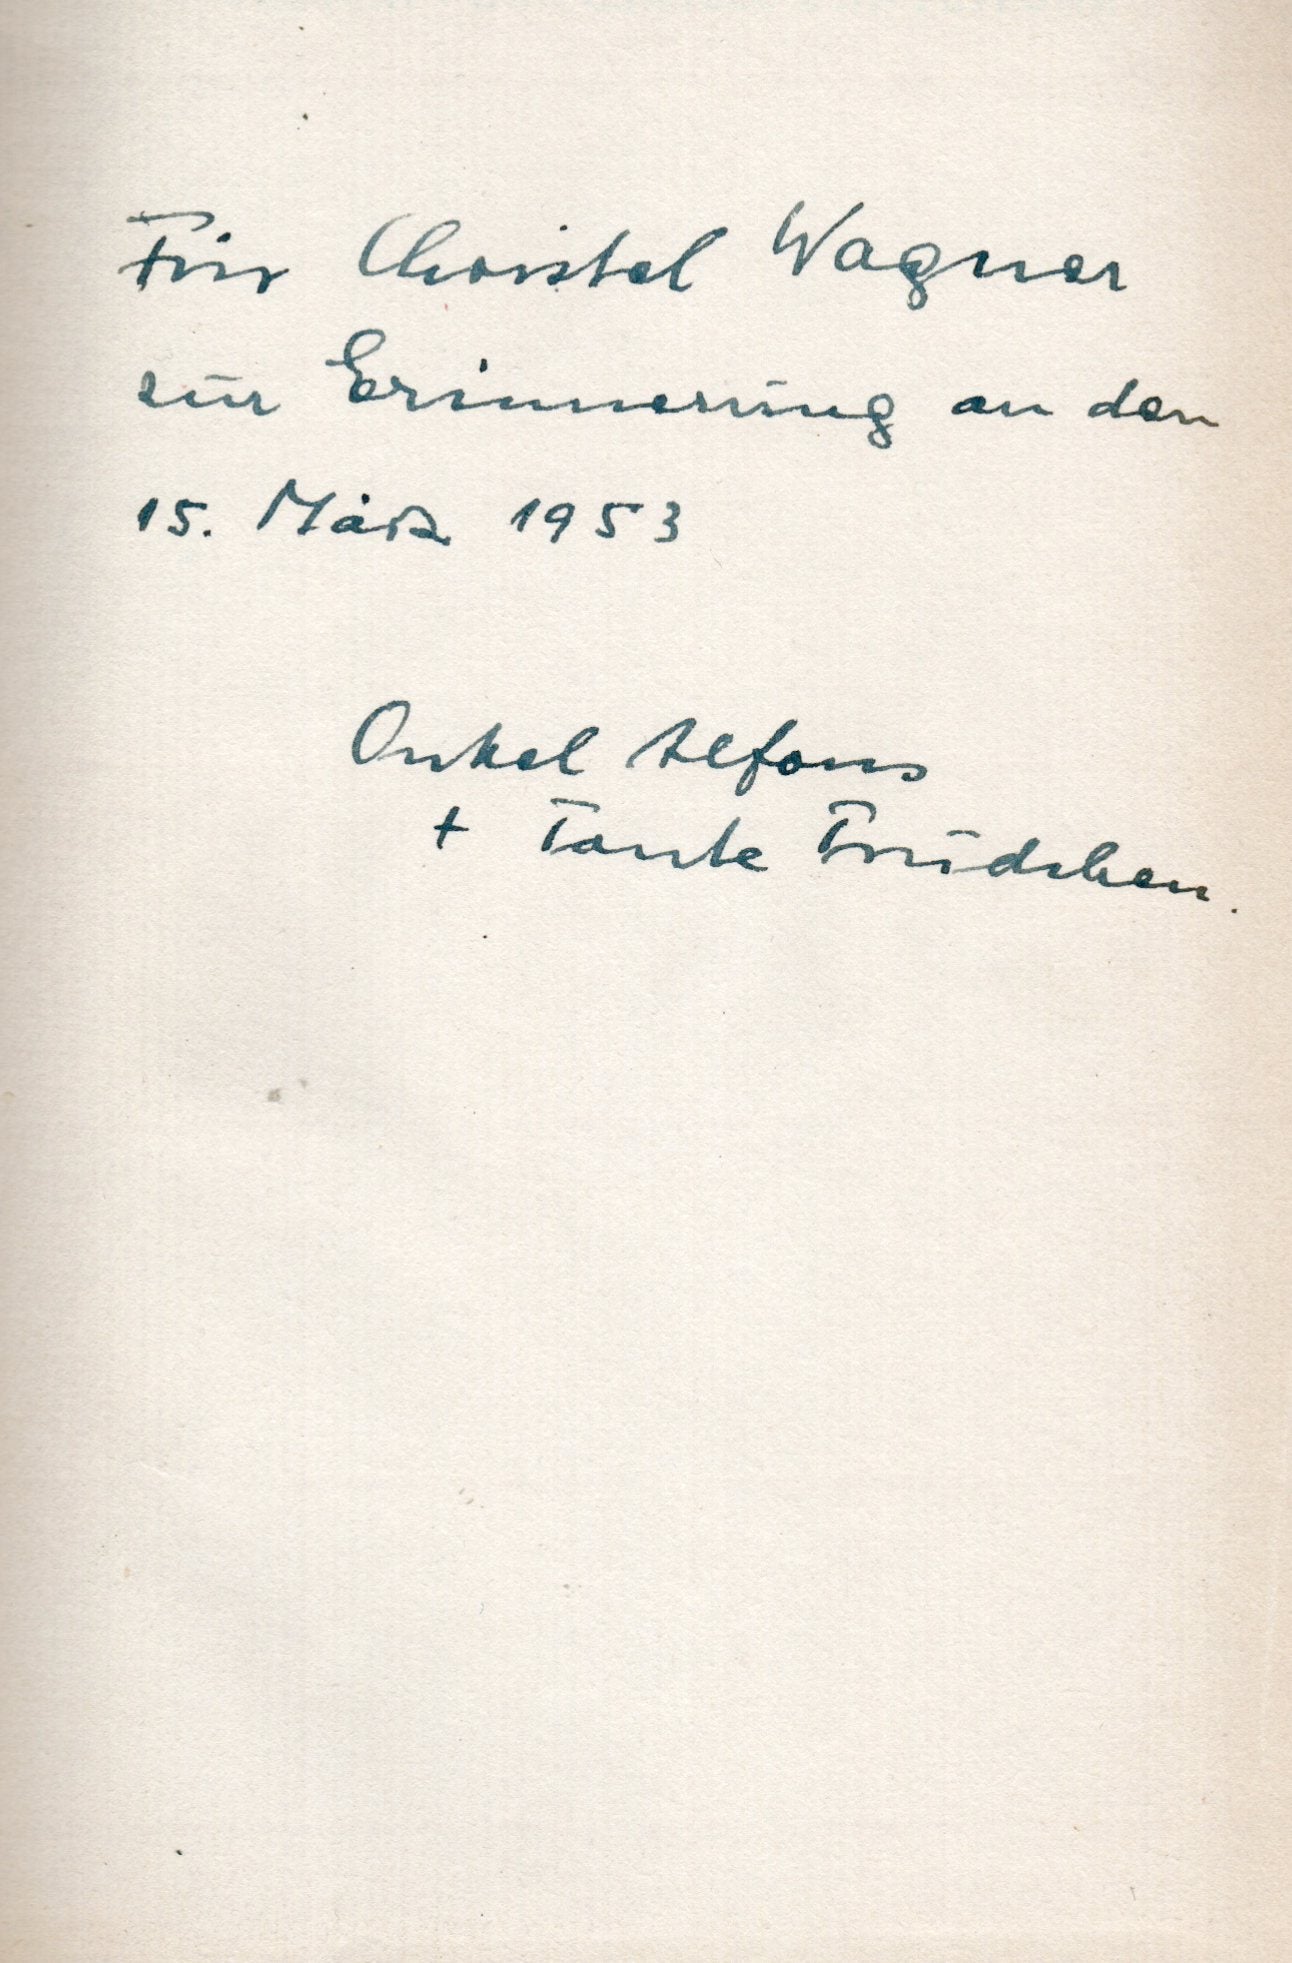 Für Christel Wagner
zur Erinnerung an den
15. März 1953
Onkel Alfons
+ Tante Trudchen.